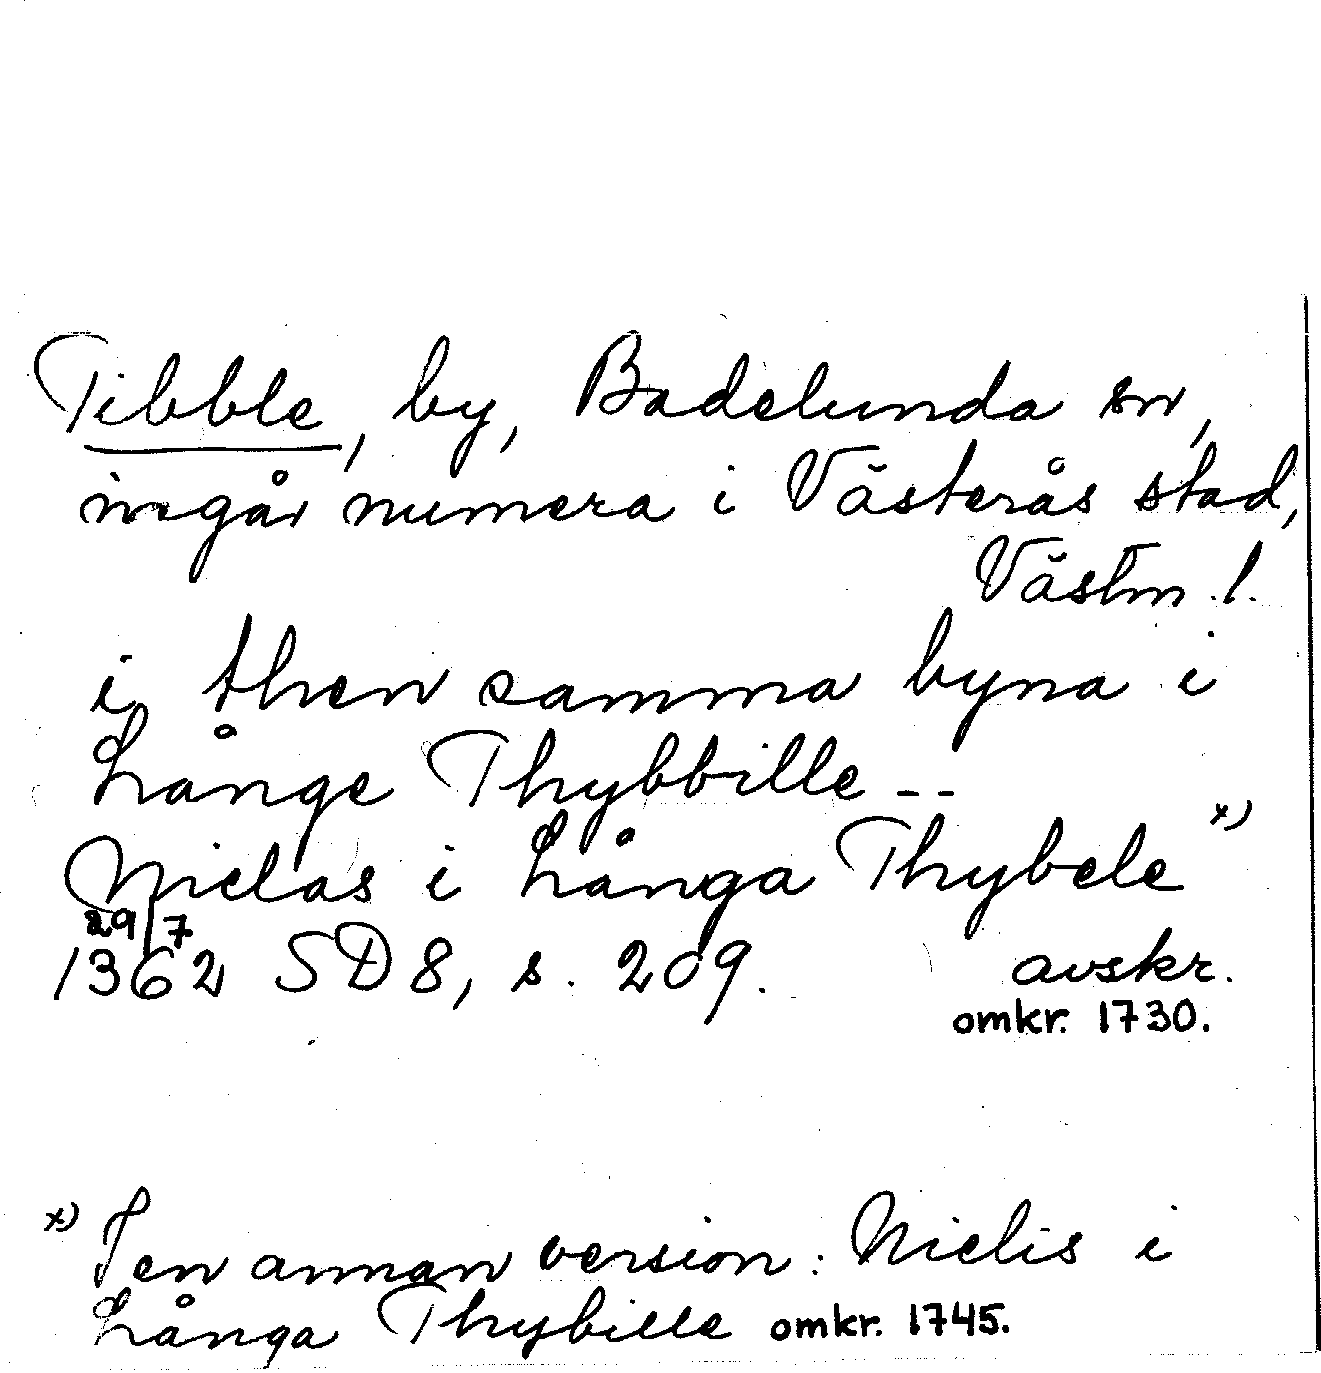 Tibble, by, Badelunda sn,
ingår numera i Västerås stad,
Västm. l.
i then samma byna i
Långe Thybbille --
Nielas i Långa Thybele x)
29/7
1362 SD 8, s. 209. avskr.
omkr. 1730.
x) I en annan version: Nielis i
Långa Thybille omkr. 1745.